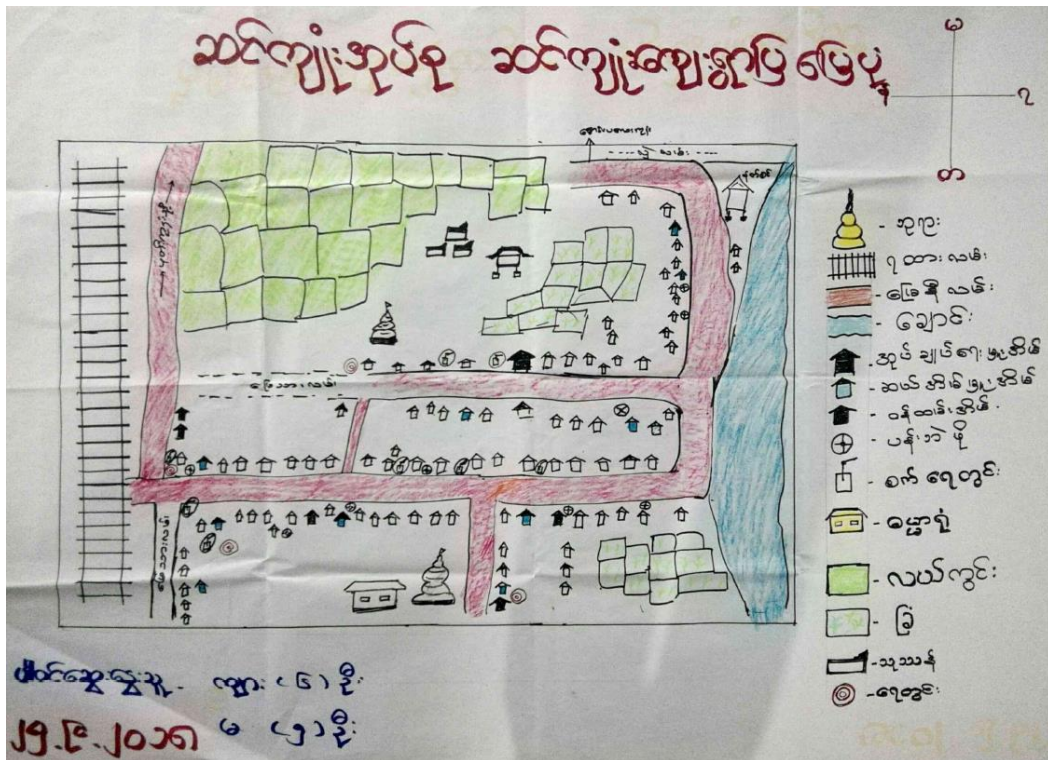 ဆင်ကျုံးအုပ်စု ဆင်ကျုံးကျေးရွာပြ မြေပုံ
မ
ရ
တ
လှည်းလမ်း
မြေသားလမ်း
- ဘုရား
ရထားလမ်း
- မြေနီလမ်း
- ချောင်း
- အုပ်ချုပ်ရေးမှူးအိမ်
- ဆယ်အိမ်မှူးအိမ်
- ဝန်ထမ်းအိမ်
- ပန်းဘဲဖို
- စက်ရေတွင်း
- ဓမ္မာရုံ
- လယ်ကွင်း
- ခြံ
- သုဿန်
- ရေတွင်း
ပါဝင်ဆွေးနွေးသူ - ကျား (၆) ဦး
မ (၅) ဦး